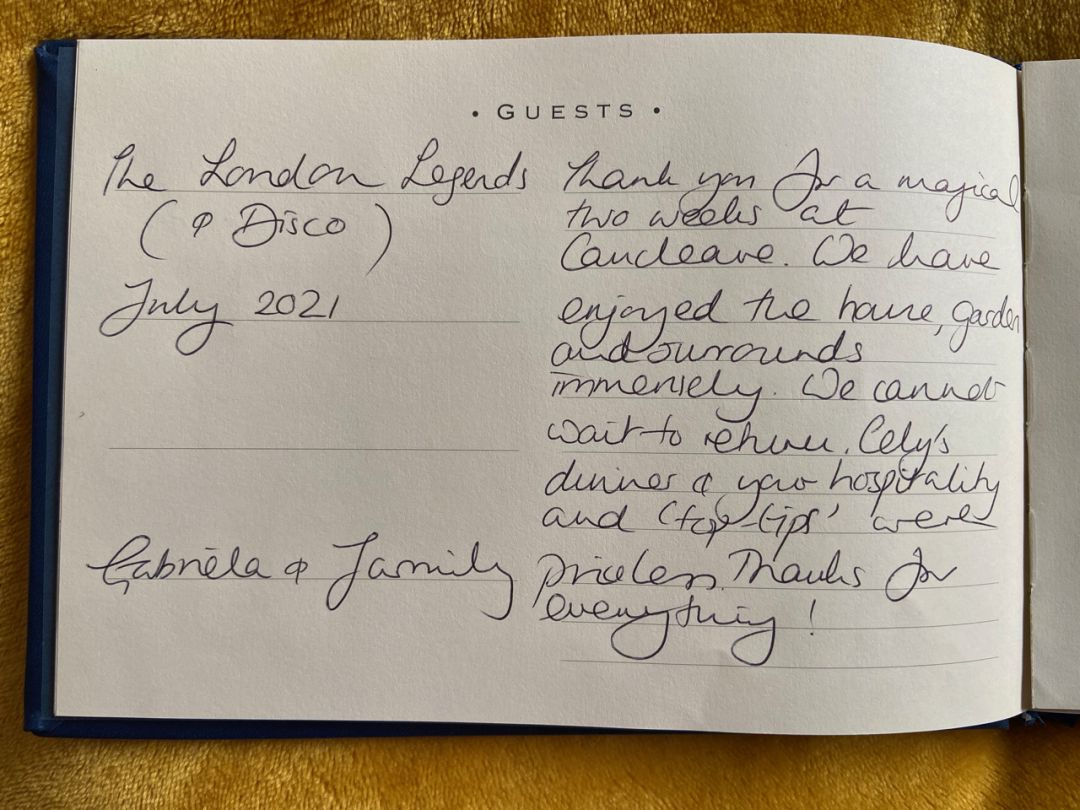 • GUESTS •
The London Legends
(& Disco)
July 2021
Gabriela & Family
Thank you for a magical
two weeks at
Cancleave. We have
enjoyed the house, garden
and surrounds
immensely. We cannot
wait to return. Cely's
dinner & your hospitality
and 'top-tips' were
priceless. Thanks for
everything!